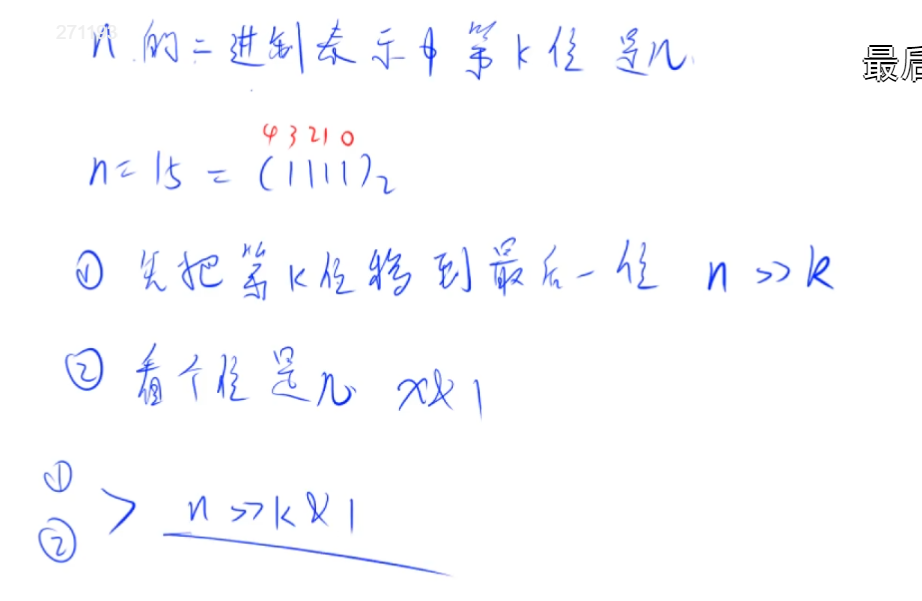 271193
n 的二进制表示中第k位是几
最后
4 3 2 1 0
n = 15 = (1111)₂
① 先把第k位移到最后一位 n >> k
② 看个位是几 x&1
①
② > n >> k & 1